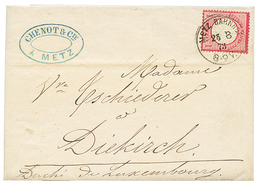 CHENOT & Cie
A METZ
METZ BAHNHOF
26 8
Madame
Vve Tschiederer
à
Diekirch
Duché de Luxembourg